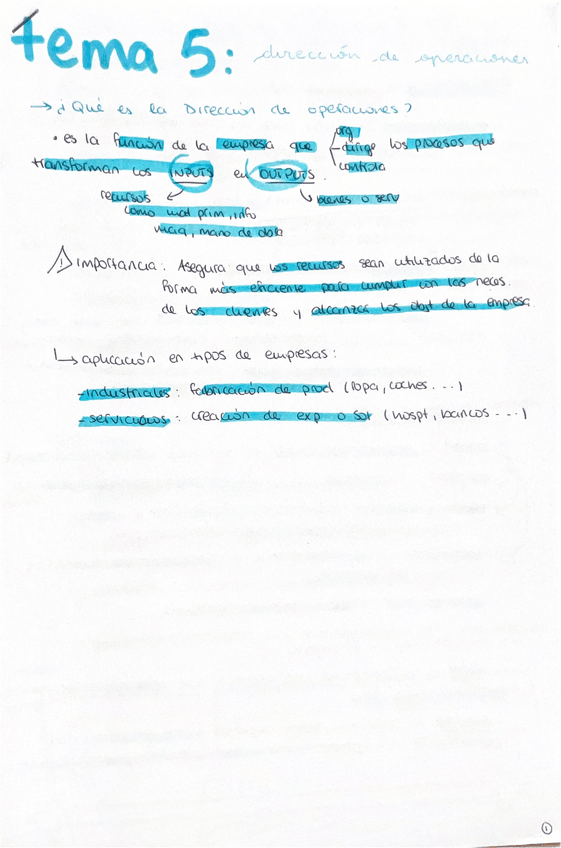 tema 5: dirección de operaciones
→ ¿Qué es la Dirección de operaciones?
• es la función de la empresa que org
-dirige los procesos que
controla
transforman los INPUTS en OUTPUTS.
recursos bienes o serv
como mat prim, info
maq, mano de obra
! Importancia: Asegura que los recursos sean utilizados de la
forma más eficiente para cumplir con las neces.
de los clientes y alcanzar los objt de la empresa.
↳ aplicación en tipos de empresas:
-industriales: fabricación de prod (ropa, coches...)
-servicios: creación de exp o sol (hospt, bancos...)
1